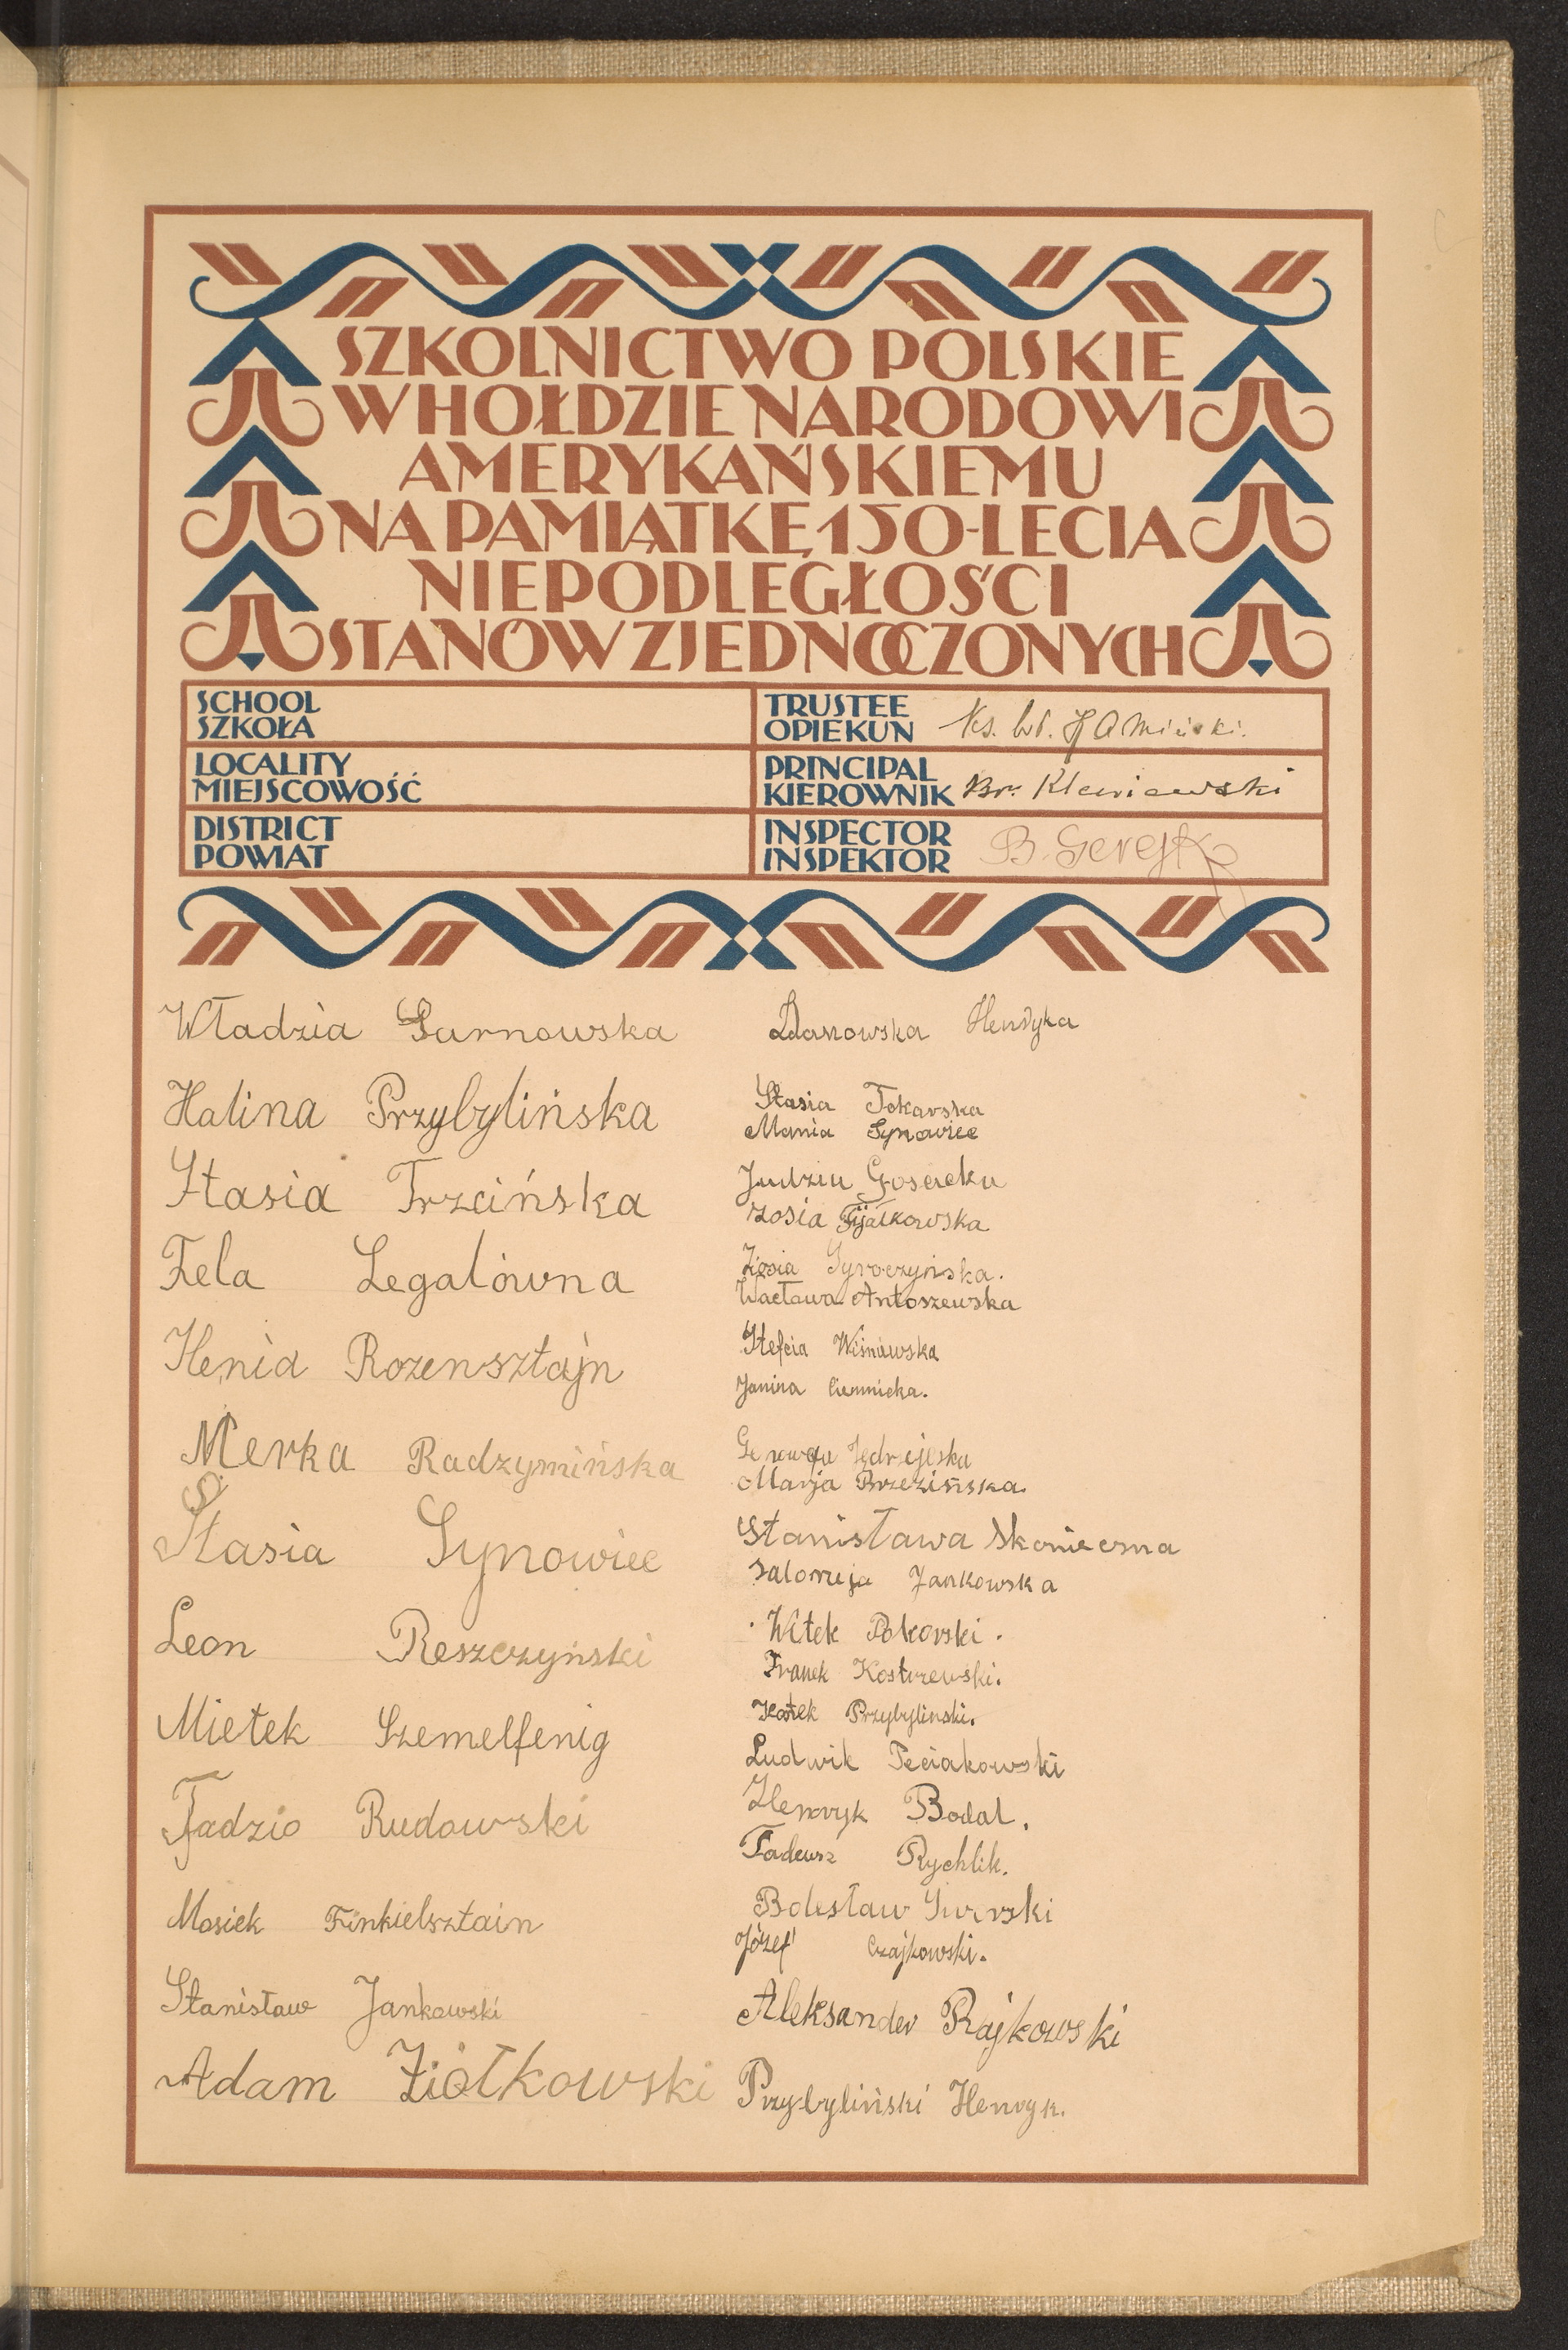 SZKOLNICTWO POLSKIE
W HOŁDZIE NARODOWI
AMERYKAŃSKIEMU
NA PAMIĄTKĘ 150-LECIA
NIEPODLEGŁOŚCI
STANÓW ZJEDNOCZONYCH
SCHOOL
SZKOŁA
TRUSTEE
OPIEKUN Ks. Wł. Kamiński.
LOCALITY
MIEJSCOWOŚĆ
PRINCIPAL
KIEROWNIK Br. Klewiewski
DISTRICT
POWIAT
INSPECTOR
INSPEKTOR B.
Władzia Sarnowska
Halina Przybylińska
Stasia Trzcińska
Fela Legalówna
Henia Rozensztajn
Merka Radzymińska
Stasia Synowiec
Leon Reszczyński
Mietek Szemelfenig
Tadzio Rudowski
Mosiek Finkielsztain
Stanisław Jankowski
Adam Ziółkowski
Zdanowska Henryka
Stasia Tokarska
Mania Synowiec
Judzia
Zosia Fijałkowska
Zosia Syroczyńska.
Wacława Antoszewska
Stefcia Wiśniewska
Janina Ciemnicka.
Genowefa Jędrzejska
Marja Brzezińska.
Stanisława Skonieczna
Salomeja Jankowska
Witek Pokorski.
Franek Kostrzewski.
Przybyliński.
Ludwik Peciakowski
Henryk Bodal.
Tadeusz Rychlik.
Bolesław
Józef Czajkowski.
Aleksander Rajkowski
Przybyliński Henryk.